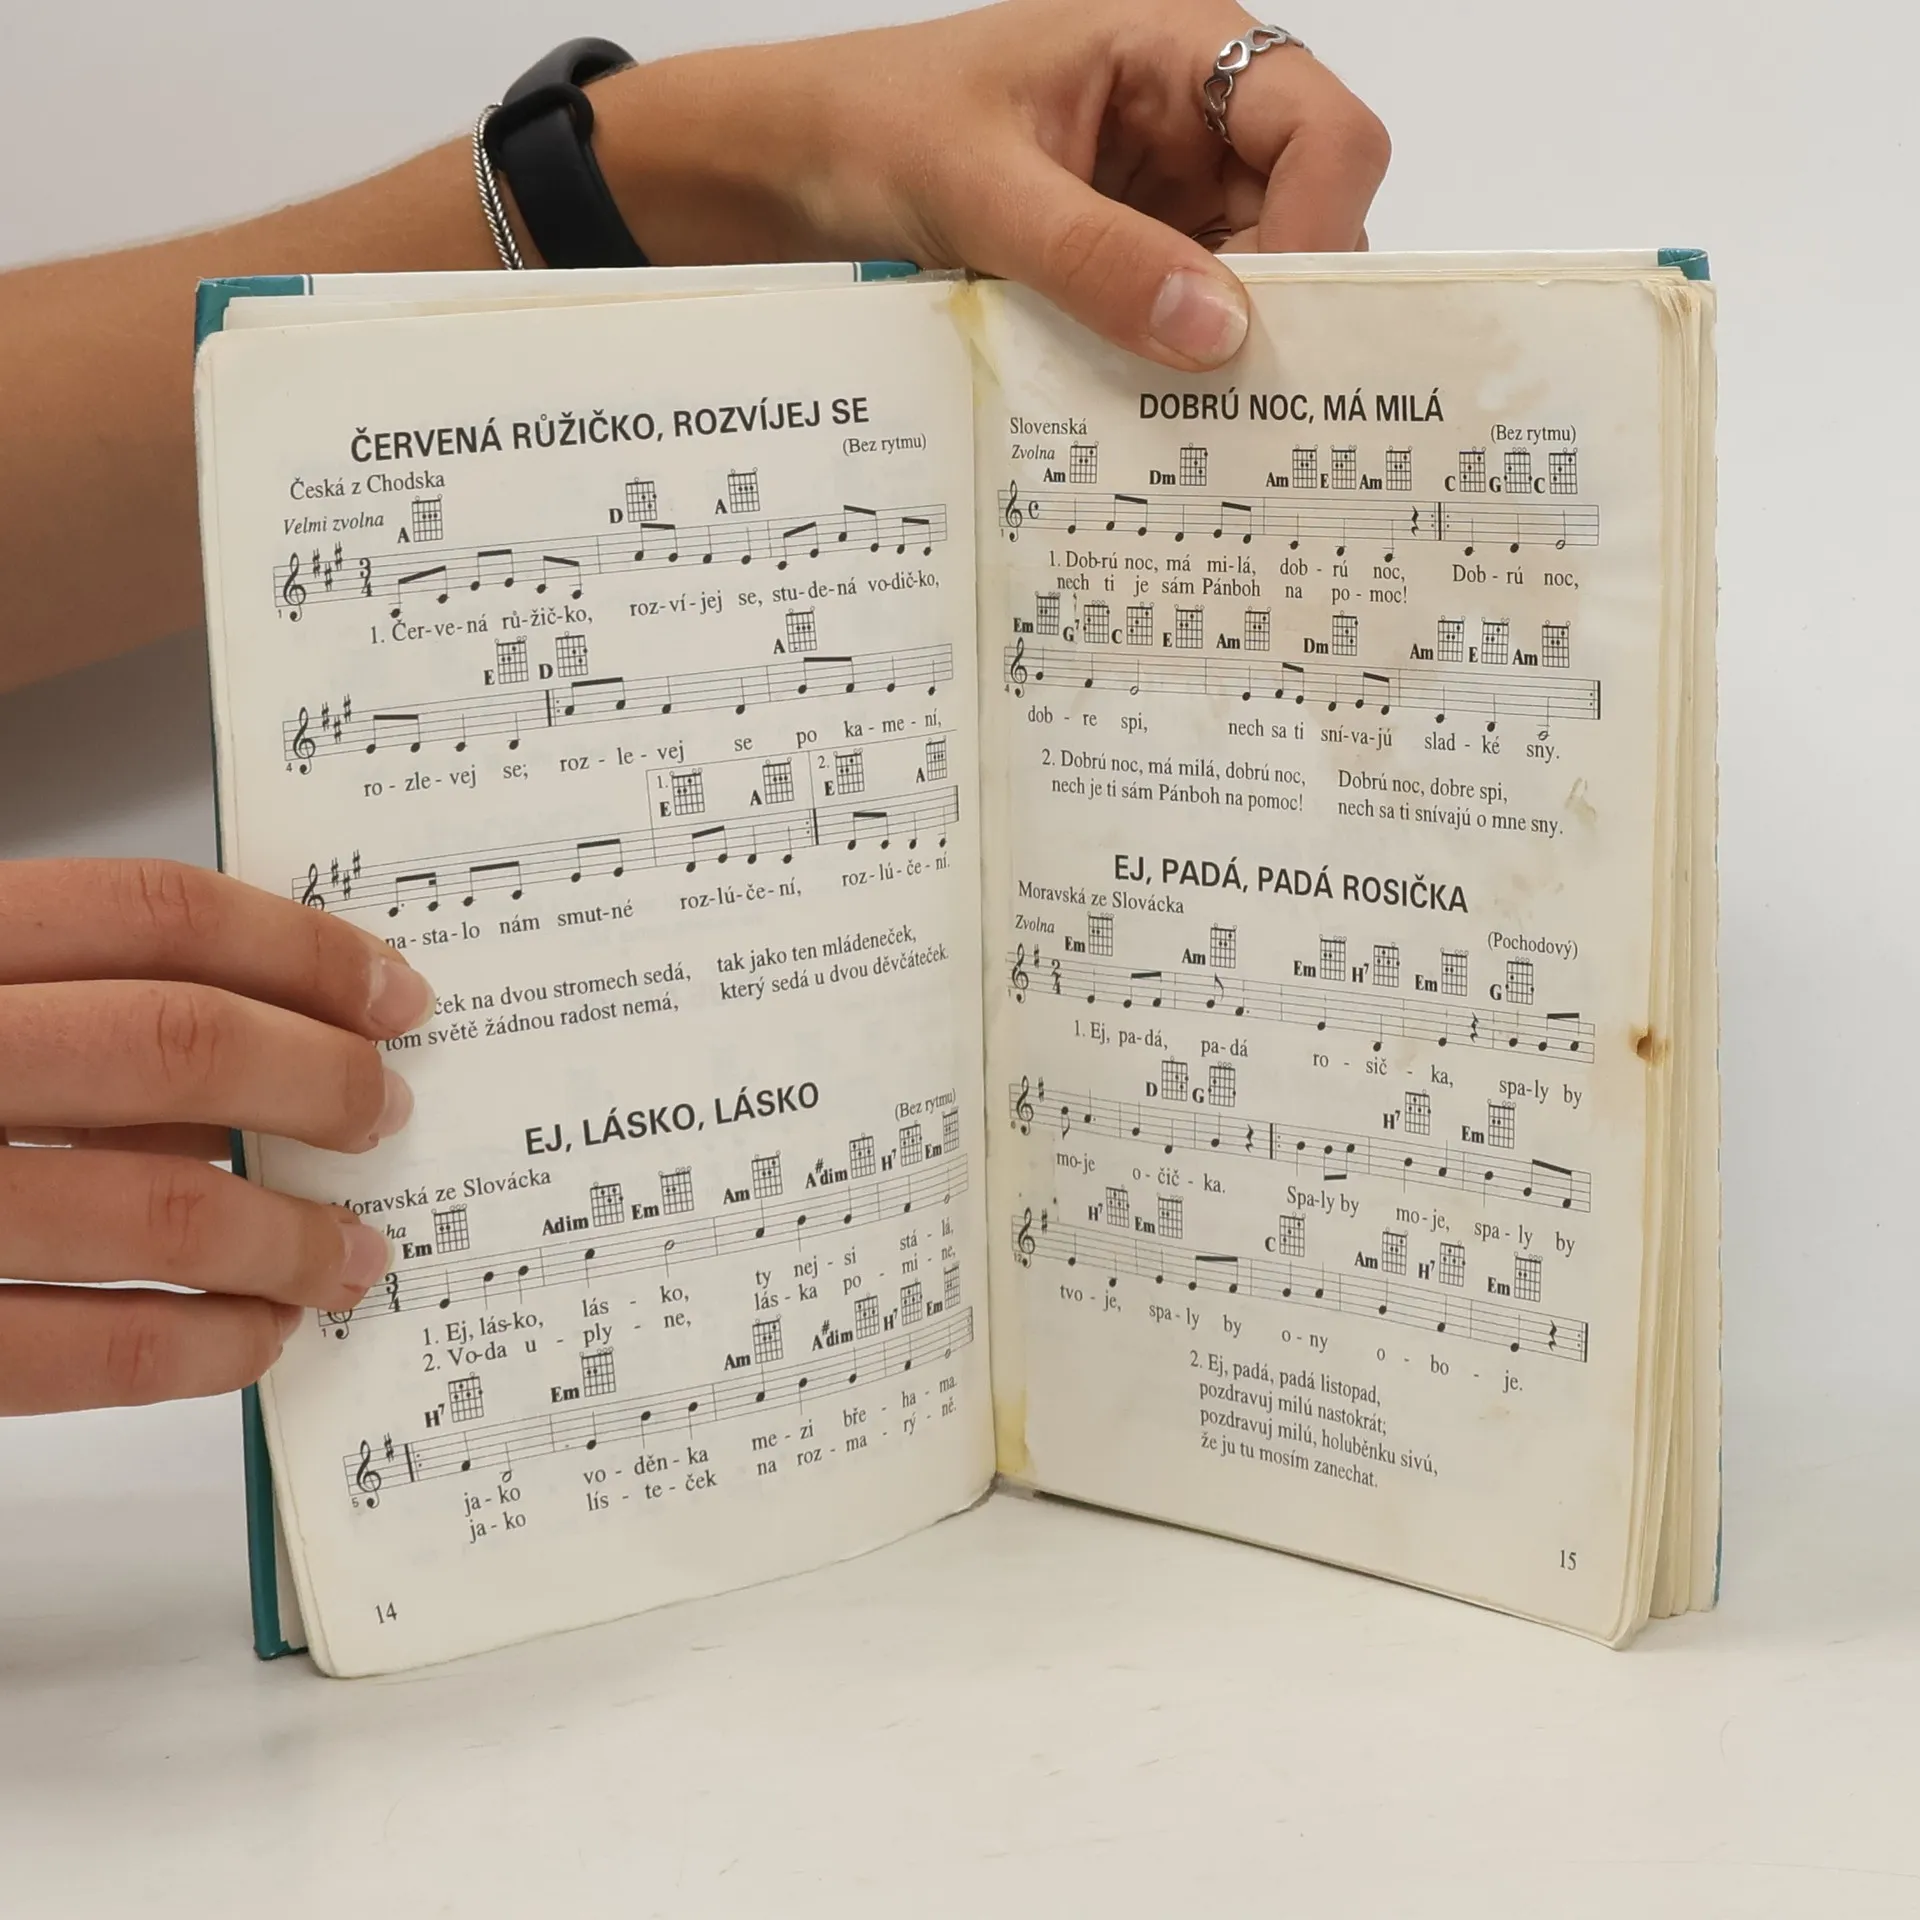 ČERVENÁ RŮŽIČKO, ROZVÍJEJ SE
(Bez rytmu)
Česká z Chodska
Velmi zvolna
A D A
3
4
1
1. Čer-ve-ná rů-žič-ko, roz-ví-jej se, stu-de-ná vo-dič-ko,
E D A
4
ro - zle - vej se; roz - le - vej se po ka - me - ní,
1. E A 2. E A
na - sta - lo nám smut-né roz-lú-če-ní, roz-lú-če-ní.
ček na dvou stromech sedá,
tom světě žádnou radost nemá,
tak jako ten mládeneček,
který sedá u dvou děvčáteček.
EJ, LÁSKO, LÁSKO
(Bez rytmu)
Moravská ze Slovácka
Em Adim Em Am A#dim H7 Em
3
4
1
1. Ej, lás-ko, lás - ko, ty nej - si stá - lá,
2. Vo-da u - ply - ne, lás - ka po - mi - ne,
H7 Em Am A#dim H7 Em
5
ja - ko vo - děn - ka me - zi bře - ha - ma.
ja - ko lís - te - ček na roz - ma - rý - ně.
14
DOBRÚ NOC, MÁ MILÁ
Slovenská
(Bez rytmu)
Zvolna
Am Dm Am E Am C G C
1
1. Dob-rú noc, má mi-lá, dob - rú noc, Dob - rú noc,
nech ti je sám Pánboh na po - moc!
Em G7 C E Am Dm Am E Am
4
dob - re spi, nech sa ti sní-va-jú slad - ké sny.
2. Dobrú noc, má milá, dobrú noc,
nech je ti sám Pánboh na pomoc!
Dobrú noc, dobre spi,
nech sa ti snívajú o mne sny.
EJ, PADÁ, PADÁ ROSIČKA
Moravská ze Slovácka
(Pochodový)
Zvolna
Em Am Em H7 Em G
2
4
1
1. Ej, pa-dá, pa-dá ro - sič - ka, spa-ly by
D G H7 Em
6
mo-je o - čič - ka. Spa-ly by mo-je, spa - ly by
H7 Em C Am H7 Em
12
tvo - je, spa - ly by o - ny o - bo - je.
2. Ej, padá, padá listopad,
pozdravuj milú nastokrát;
pozdravuj milú, holuběnku sivú,
že ju tu mosím zanechat.
15